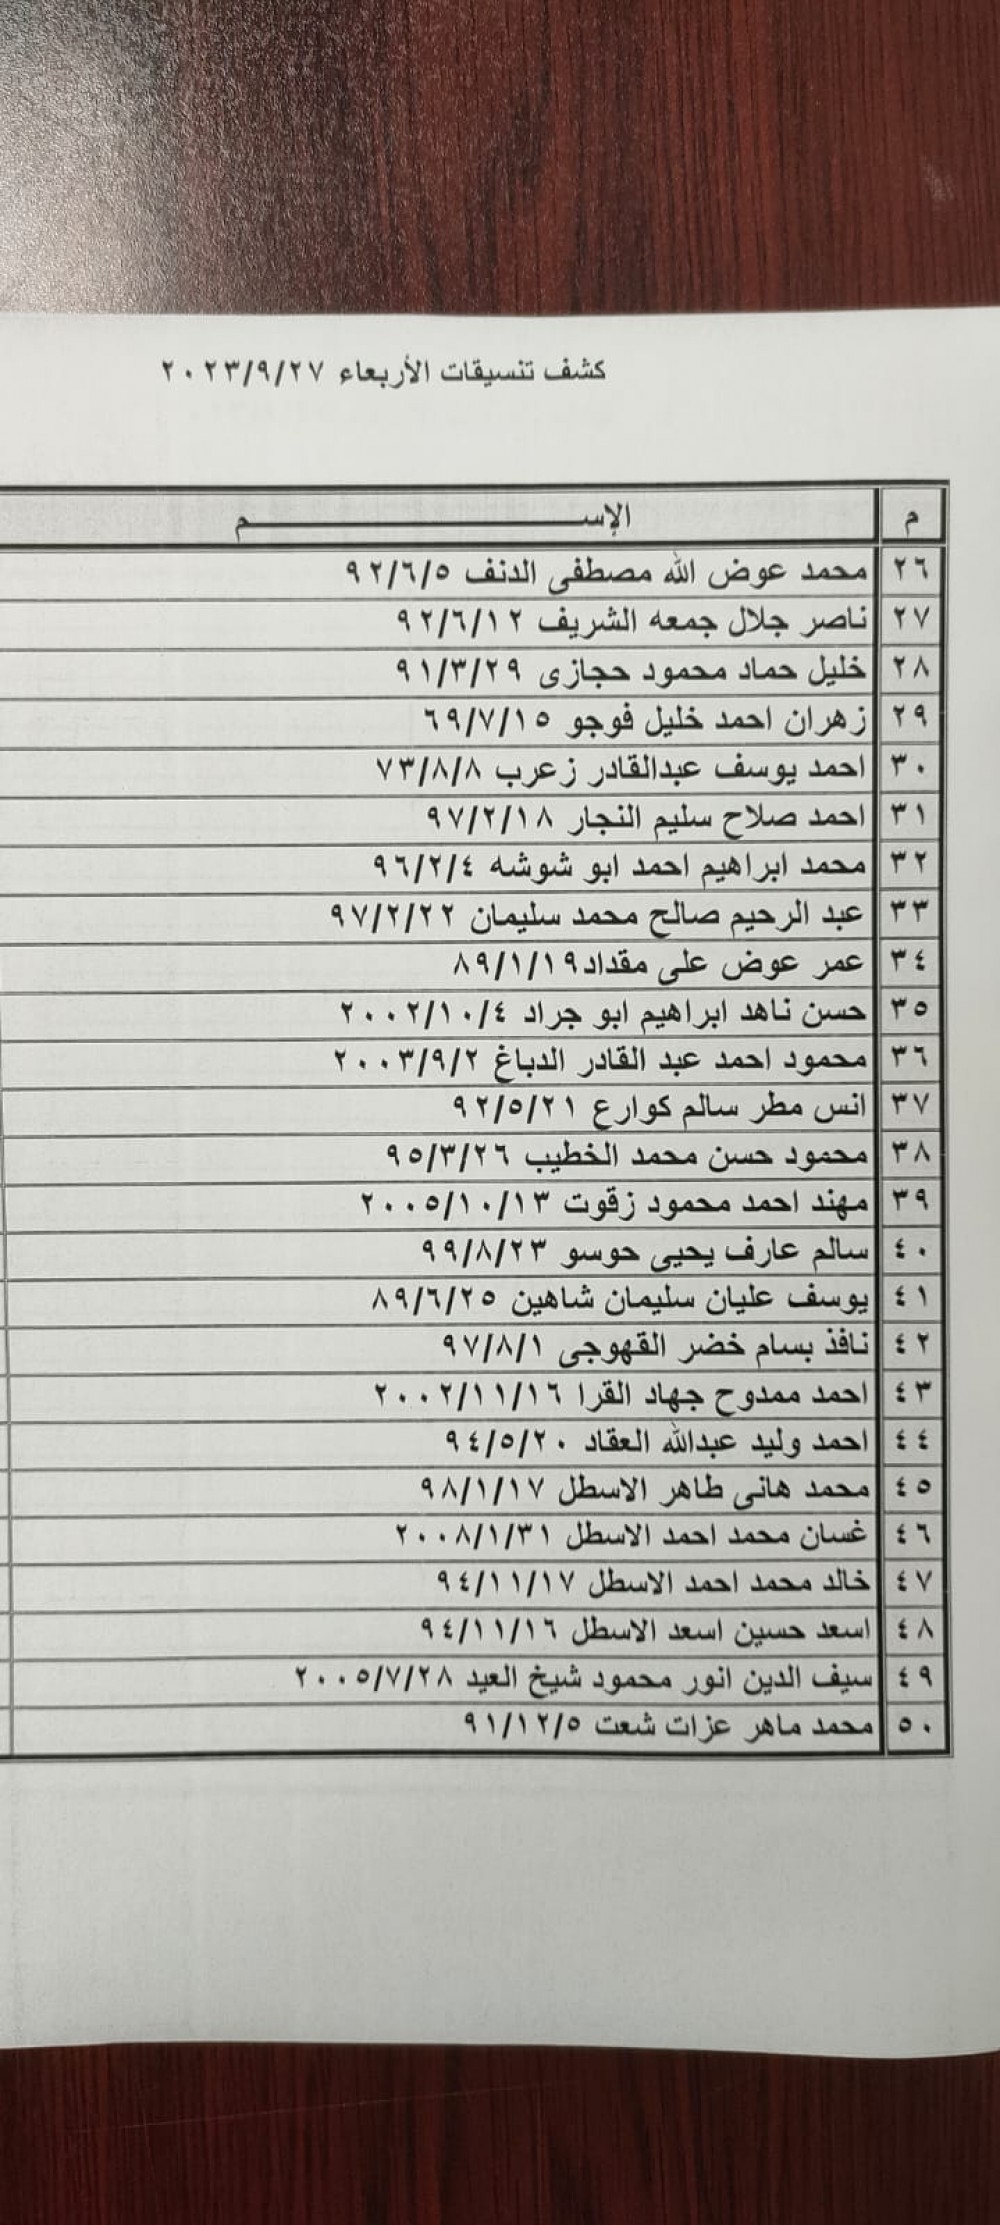 كشف تنسيقات الأربعاء ٢٠٢٣/٩/٢٧
م الإســـــــــــــــم
٢٦ محمد عوض الله مصطفى الدنف ٩٢/٦/٥
٢٧ ناصر جلال جمعه الشريف ٩٢/٦/١٢
٢٨ خليل حماد محمود حجازى ٩١/٣/٢٩
٢٩ زهران احمد خليل فوجو ٦٩/٧/١٥
٣٠ احمد يوسف عبدالقادر زعرب ٧٣/٨/٨
٣١ احمد صلاح سليم النجار ٩٧/٢/١٨
٣٢ محمد ابراهيم احمد ابو شوشه ٩٦/٢/٤
٣٣ عبد الرحيم صالح محمد سليمان ٩٧/٢/٢٢
٣٤ عمر عوض على مقداد٨٩/١/١٩
٣٥ حسن ناهد ابراهيم ابو جراد ٢٠٠٢/١٠/٤
٣٦ محمود احمد عبد القادر الدباغ ٢٠٠٣/٩/٢
٣٧ انس مطر سالم كوارع ٩٢/٥/٢١
٣٨ محمود حسن محمد الخطيب ٩٥/٣/٢٦
٣٩ مهند احمد محمود زقوت ٢٠٠٥/١٠/١٣
٤٠ سالم عارف يحيى حوسو ٩٩/٨/٢٣
٤١ يوسف عليان سليمان شاهين ٨٩/٦/٢٥
٤٢ نافذ بسام خضر القهوجى ٩٧/٨/١
٤٣ احمد ممدوح جهاد القرا ٢٠٠٢/١١/١٦
٤٤ احمد وليد عبدالله العقاد ٩٤/٥/٢٠
٤٥ محمد هانى طاهر الاسطل ٩٨/١/١٧
٤٦ غسان محمد احمد الاسطل ٢٠٠٨/١/٣١
٤٧ خالد محمد احمد الاسطل ٩٤/١١/١٧
٤٨ اسعد حسين اسعد الاسطل ٩٤/١١/١٦
٤٩ سيف الدين انور محمود شيخ العيد ٢٠٠٥/٧/٢٨
٥٠ محمد ماهر عزات شعت ٩١/١٢/٥